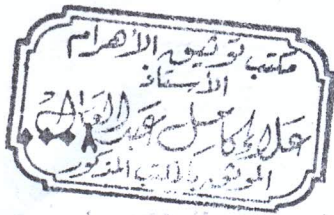 مكتب توثيق الأهرام
الأستاذ
علاء كامل عبد العال
الموثق بالمكتب المذكور